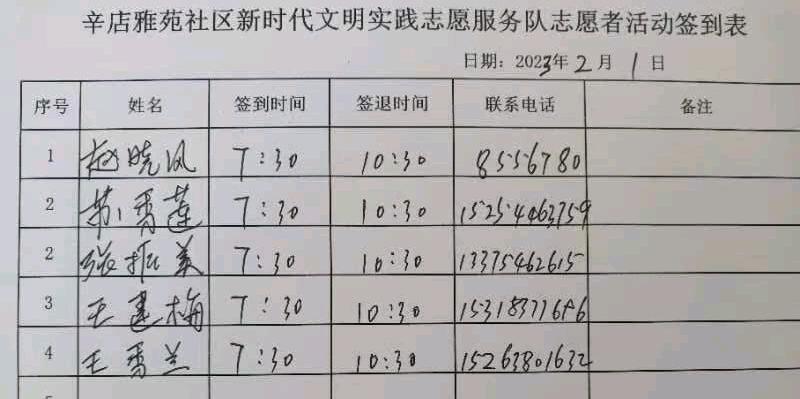 辛店雅苑社区新时代文明实践志愿服务队志愿者活动签到表
日期：2023年2月1日
序号 姓名 签到时间 签退时间 联系电话 备注
1 赵晓风 7:30 10:30 8556780
2 苏秀莲 7:30 10:30 15254463759
2 张振美 7:30 10:30 13375462615
3 王建梅 7:30 10:30
4 王秀兰 7:30 10:30 15263801632